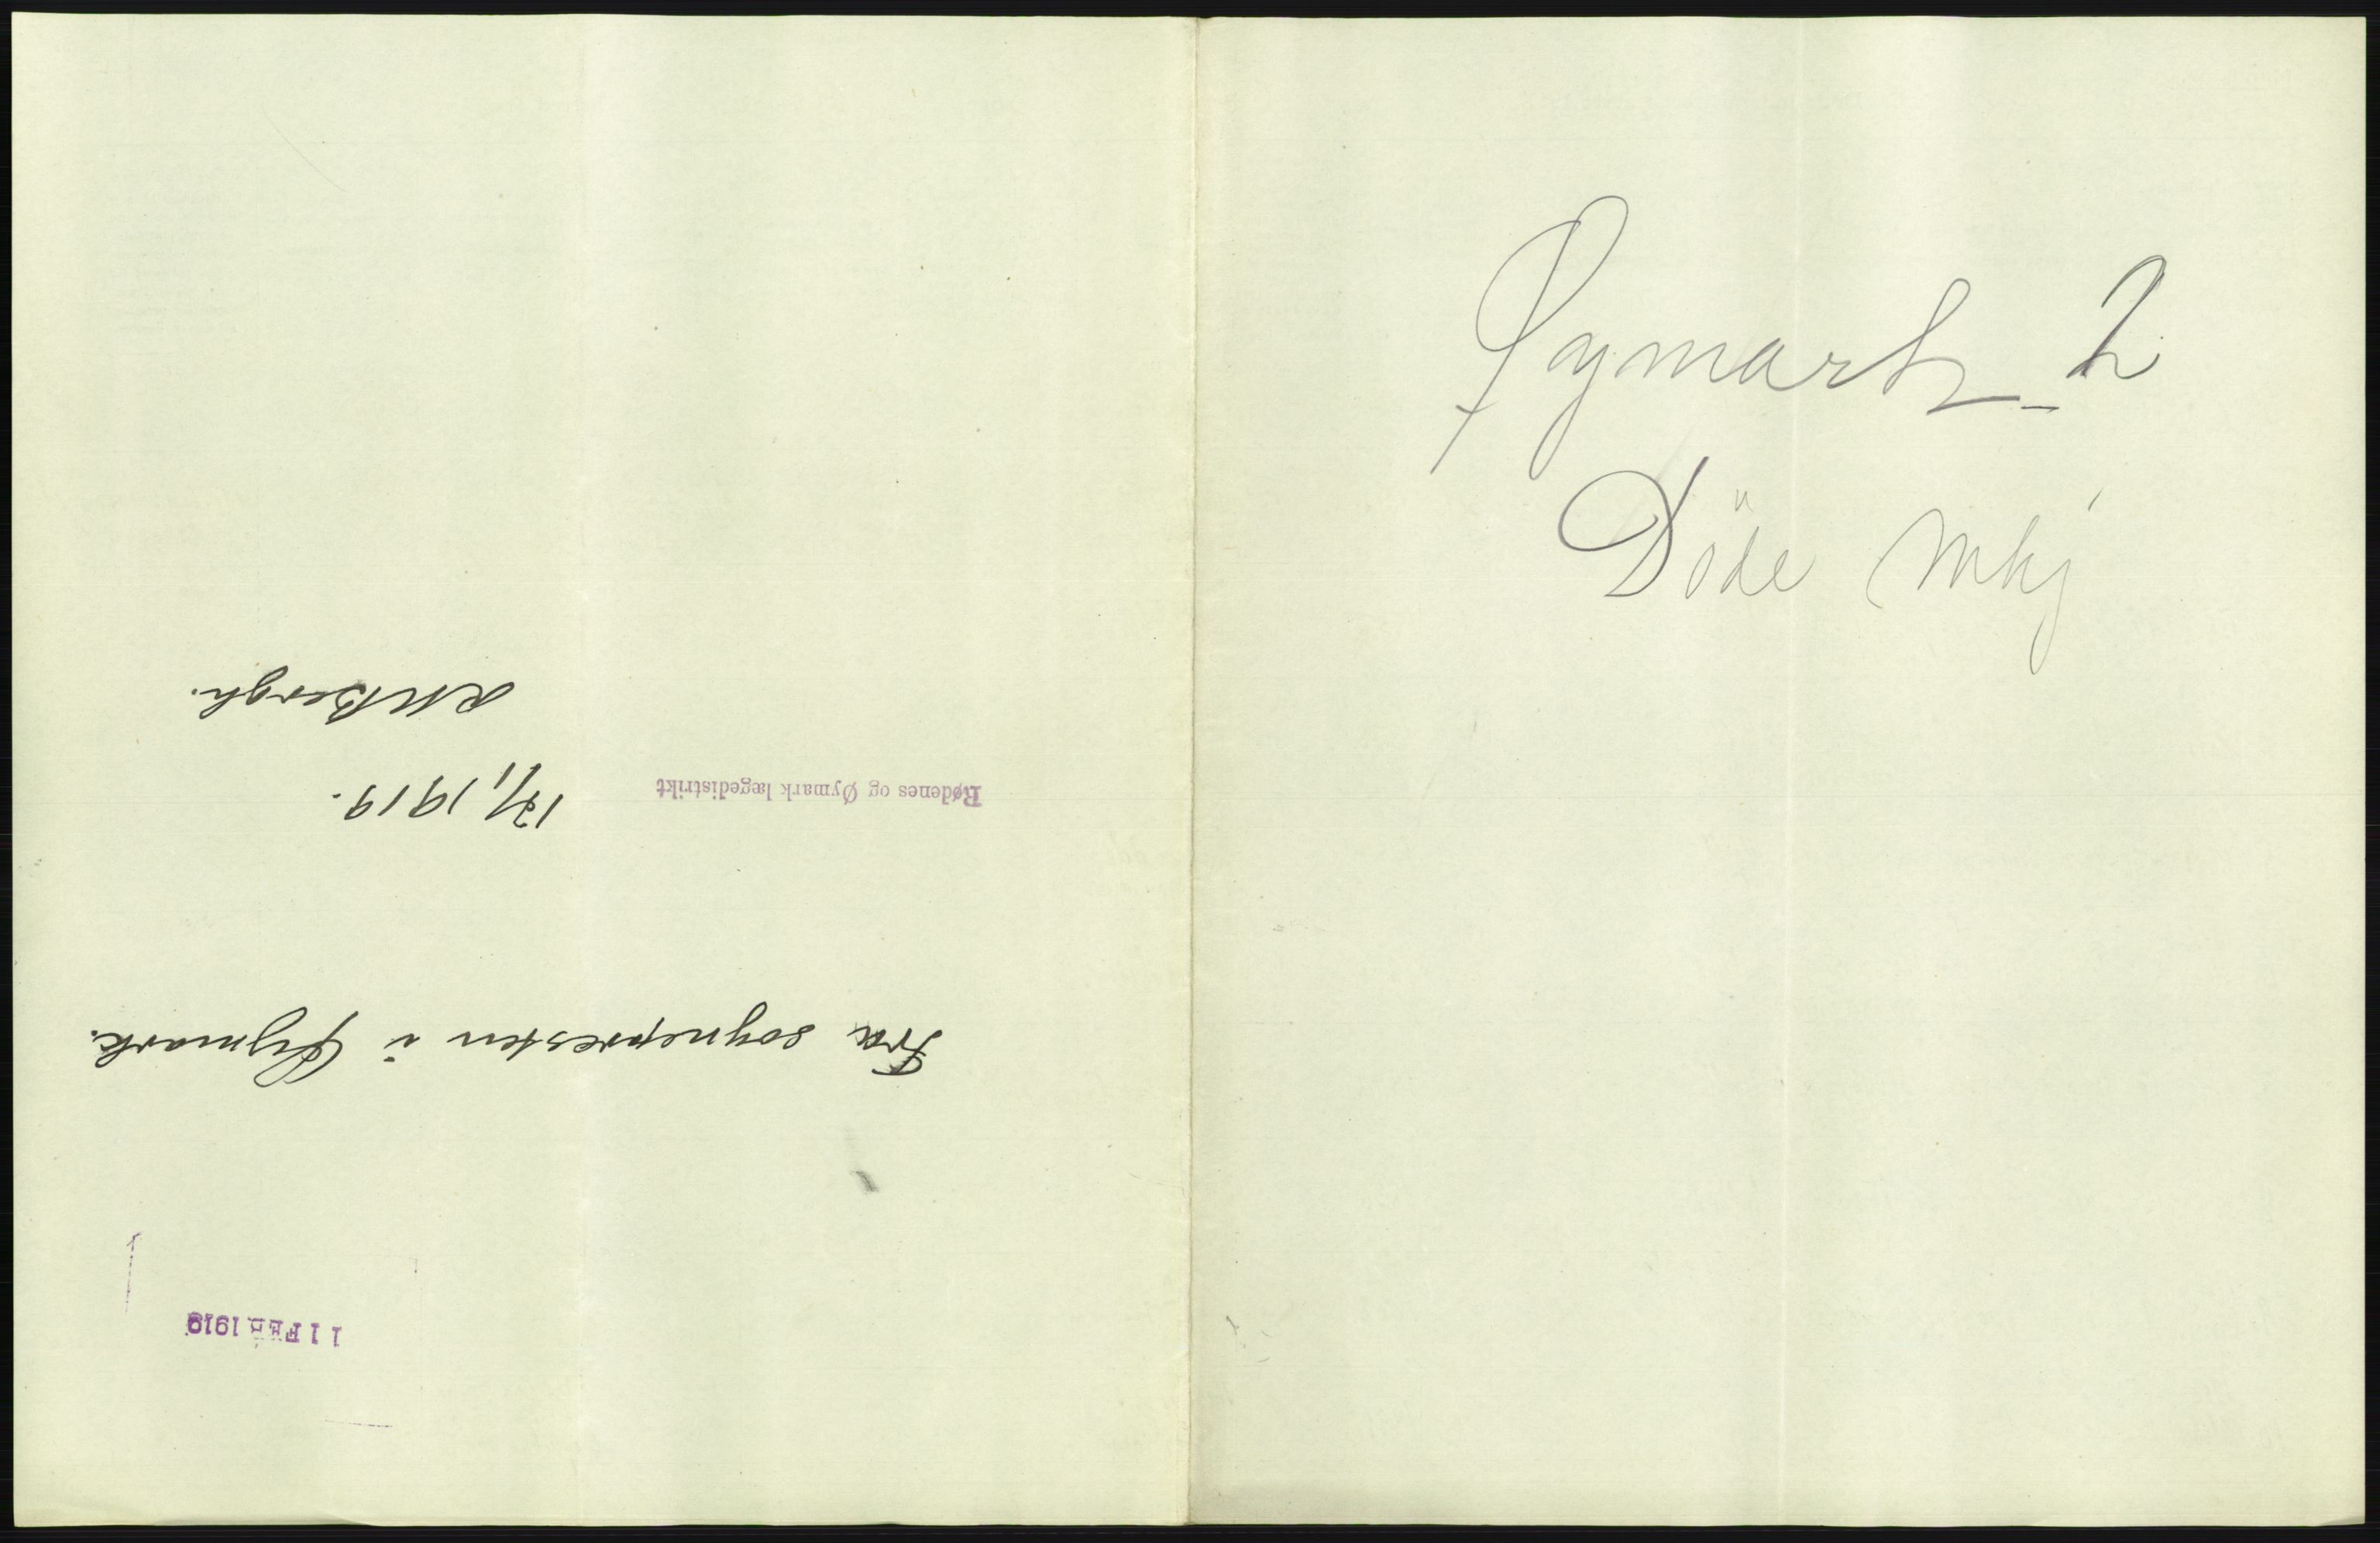 Øymark - 2
Döde Mkj
11 FEB 1919
Fra sognepresten i Øymark.
Rødenes og Øymark lægedistrikt
1919.
Bergh.